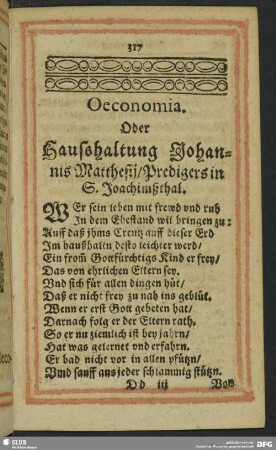 317
Oeconomia.
Oder
Haußhaltung Johan-
nis Matthesij/Predigers in
S. Joachimßthal.
WEr sein leben mit frewd vnd ruh
In dem Ehestand wil bringen zu:
Auff daß jhms Creutz auff dieser Erd
Im haußhaltn desto leichter werd/
Ein from̃ Gottfürchtigs Kind er frey/
Das von ehrlichen Eltern sey.
Vnd sich für allen dingen hüt/
Daß er nicht frey zu nah ins geblüt.
Wenn er erst Gott gebeten hat/
Darnach folg er der Eltern rath.
So er nu ziemlich ist bey jahrn/
Hat was gelernet vnd erfahrn.
Er bad nicht vor in allen pfützn/
Vnd sauff aus jeder schlammig stützn.
Dd iij
SLUB